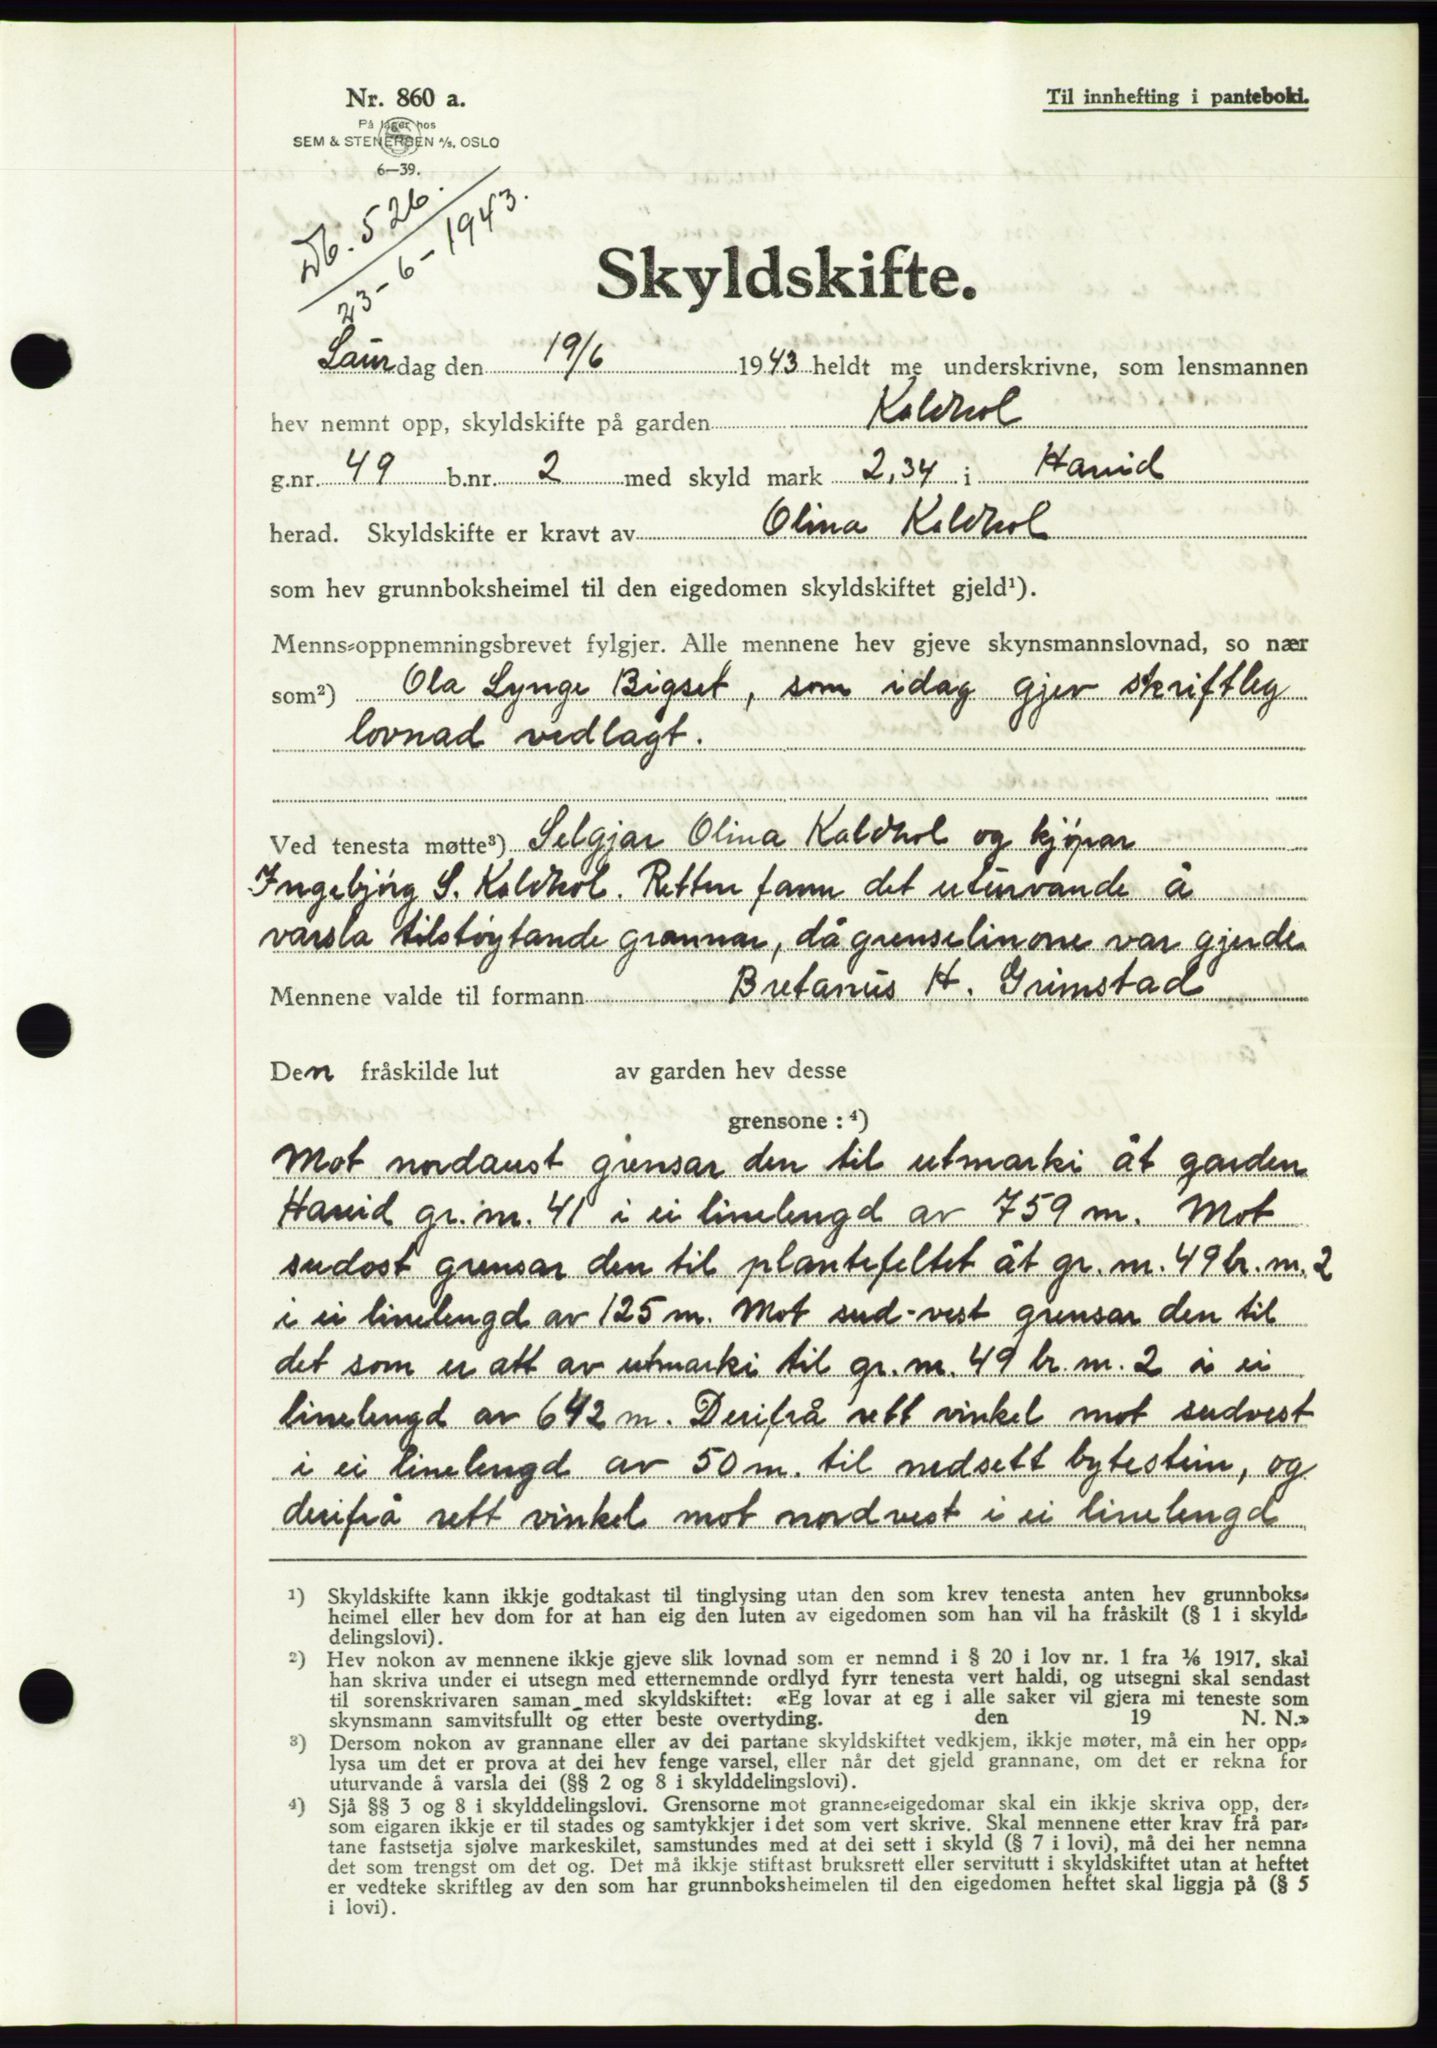 Nr. 860 a.
Til innhefting i panteboki.
På lager hos
SEM & STENERSEN A/S, OSLO
6—39.
Db. 526.
23-6-1943.
Skyldskifte.
Laur dag den 19/6 1943 heldt me underskrivne, som lensmannen
hev nemnt opp, skyldskifte på garden Kaldhol
g.nr. 49 b.nr. 2 med skyld mark 2,34 i Hareid
herad. Skyldskifte er kravt av Olina Kaldhol
som hev grunnboksheimel til den eigedomen skyldskiftet gjeld¹).
Menns-oppnemningsbrevet fylgjer. Alle mennene hev gjeve skynsmannslovnad, so nær
som²) Ola Lynge Bigset, som idag gjev skriftleg
lovnad vedlagt.
Ved tenesta møtte³) Seljar Olina Kaldhol og kjøpar
Ingebjørg S. Kaldhol. Retten fann det uturvande å
varsla tilstøytande grannar, då grenselinone var gjerde.
Mennene valde til formann Bretanus H. Grimstad
Den fråskilde lut av garden hev desse
grensone : ⁴)
Mot nordaust grensar den til utmarki åt garden
Hareid gr. nr. 41 i ei linelengd av 759 m. Mot
sudost grensar den til plantefeltet åt gr. nr. 49 br. nr. 2
i ei linelengd av 125 m. Mot sud-vest grensar den til
det som er att av utmarki til gr. nr. 49 br. nr. 2 i ei
linelengd av 642 m. Derifrå rett vinkel mot sudvest
i ei linelengd av 50 m. til nedsett bytestein, og
derifrå rett vinkel mot nordvest i ei linelengd
¹) Skyldskifte kann ikkje godtakast til tinglysing utan den som krev tenesta anten hev grunnboks-
heimel eller hev dom for at han eig den luten av eigedomen som han vil ha fråskilt (§ 1 i skyld-
delingslovi).
²) Hev nokon av mennene ikkje gjeve slik lovnad som er nemnd i § 20 i lov nr. 1 fra 1/6 1917, skal
han skriva under ei utsegn med etternemnde ordlyd fyrr tenesta vert haldi, og utsegni skal sendast
til sorenskrivaren saman med skyldskiftet: «Eg lovar at eg i alle saker vil gjera mi teneste som
skynsmann samvitsfullt og etter beste overtyding. den 19 N. N.»
³) Dersom nokon av grannane eller av dei partane skyldskiftet vedkjem, ikkje møter, må ein her opp-
lysa um det er prova at dei hev fenge varsel, eller når det gjeld grannane, om det er rekna for
uturvande å varsla dei (§§ 2 og 8 i skylddelingslovi).
⁴) Sjå §§ 3 og 8 i skylddelingslovi. Grensorne mot granne-eigedomar skal ein ikkje skriva opp, der-
som eigaren ikkje er til stades og samtykkjer i det som vert skrive. Skal mennene etter krav frå par-
tane fastsetja sjølve markeskilet, samstundes med at dei sett i skyld (§ 7 i lovi), må dei her nemna
det som trengst om det og. Det må ikkje stiftast bruksrett eller servitutt i skyldskiftet utan at heftet
er vedteke skriftleg av den som har grunnboksheimelen til den eigedomen heftet skal liggja på (§ 5
i lovi).